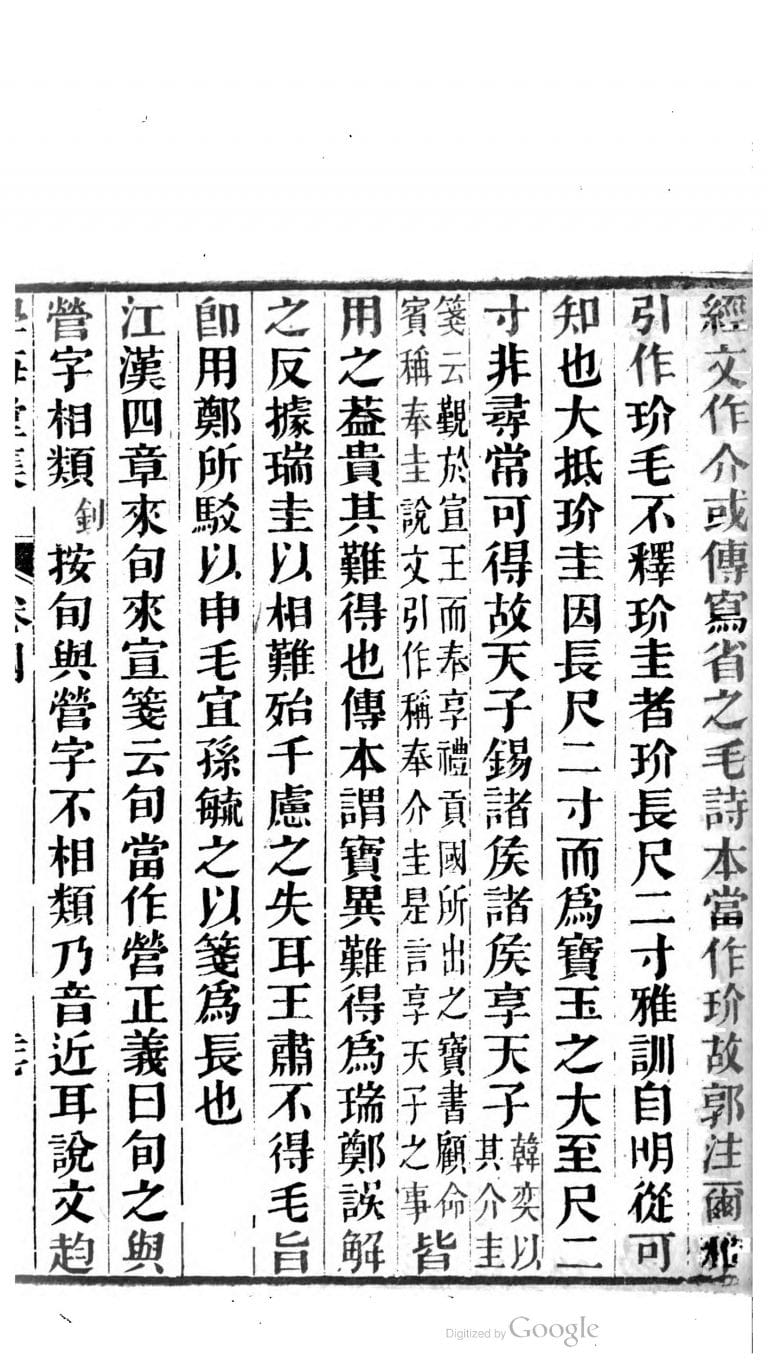 經文作介或傳寫省之毛詩本當作玠故郭注爾雅
引作玠毛不釋玠圭者玠長尺二寸雅訓自明從可
知也大抵玠圭因長尺二寸而爲寶玉之大至尺二
寸非尋常可得故天子錫諸侯諸侯享天子韓奕以其介圭
箋云覲於宣王而奉享禮貢國所出之寶書顧命
賓稱奉圭說文引作稱奉介圭是言享天子之事皆
用之葢貴其難得也傳本謂寶異難得爲瑞鄭誤解
之反據瑞圭以相難殆千慮之失耳王肅不得毛旨
卽用鄭所駁以申毛宜孫毓之以箋爲長也
江漢四章來旬來宣箋云旬當作營正義曰旬之與
營字相類 釗按旬與營字不相類乃音近耳說文趋
學海堂集 卷四